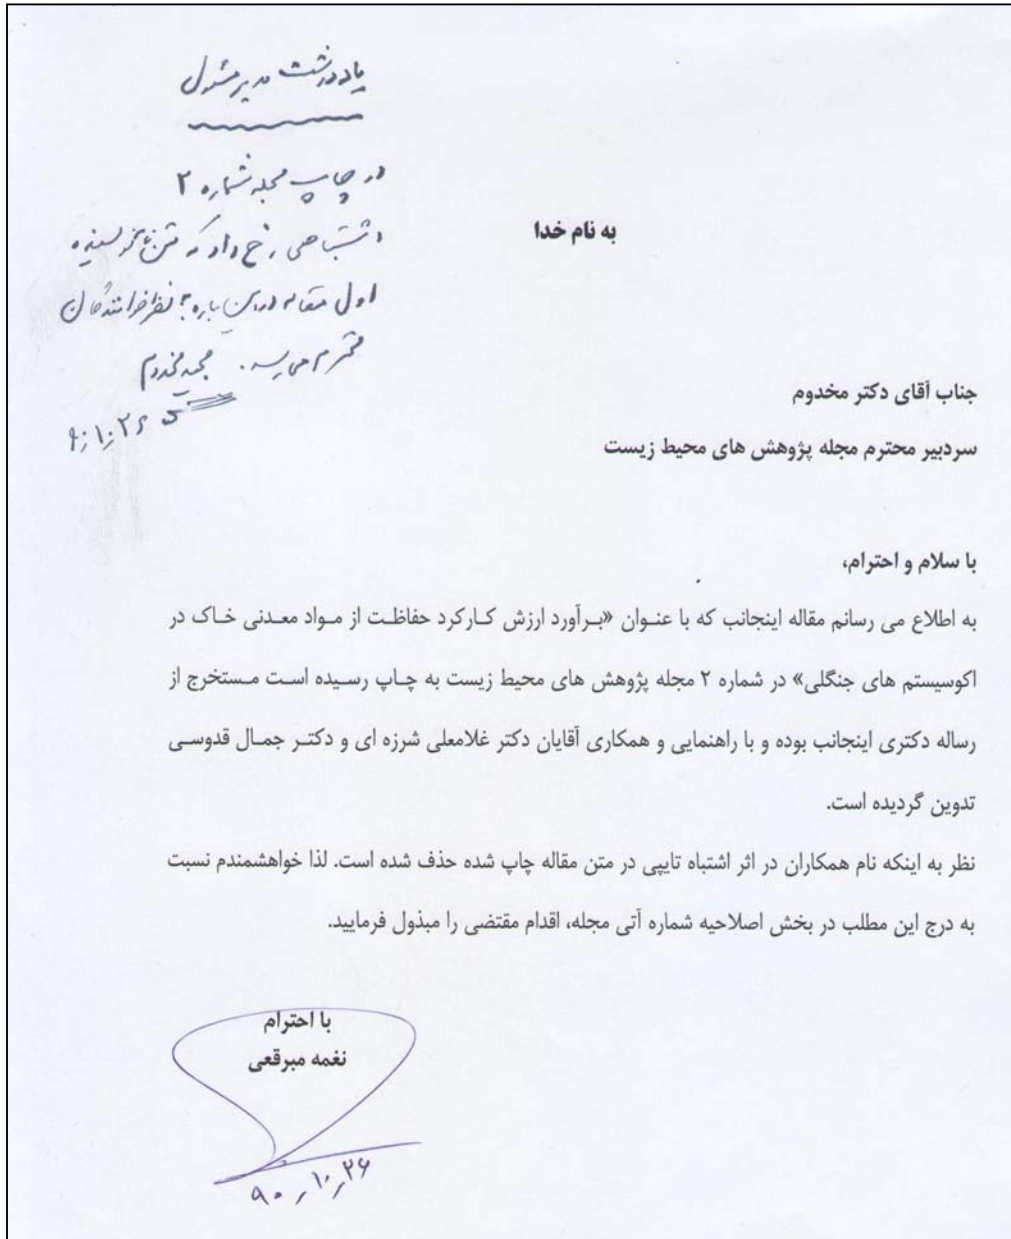 یادداشت مدیر مسئول
در چاپ مجله شماره ۲
اشتباهی رخ داد که متن نویسنده
اول مقاله در این باره به نظر خوانندگان
محترم می رسد. مجید مخدوم
به نام خدا
جناب آقای دکتر مخدوم
سردبیر محترم مجله پژوهش های محیط زیست
با سلام و احترام،
به اطلاع می رسانم مقاله اینجانب که با عنوان «برآورد ارزش کارکرد حفاظت از مواد معدنی خاک در
اکوسیستم های جنگلی» در شماره ۲ مجله پژوهش های محیط زیست به چاپ رسیده است مستخرج از
رساله دکتری اینجانب بوده و با راهنمایی و همکاری آقایان دکتر غلامعلی شرزه ای و دکتر جمال قدوسی
تدوین گردیده است.
نظر به اینکه نام همکاران در اثر اشتباه تایپی در متن مقاله چاپ شده حذف شده است. لذا خواهشمندم نسبت
به درج این مطلب در بخش اصلاحیه شماره آتی مجله، اقدام مقتضی را مبذول فرمایید.
با احترام
نغمه مبرقعی
۹۰٫۱۰٫۲۶